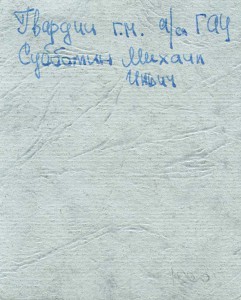 Гвардии г.м. а/сл ГАУ
Субботин Михаил
Ильич